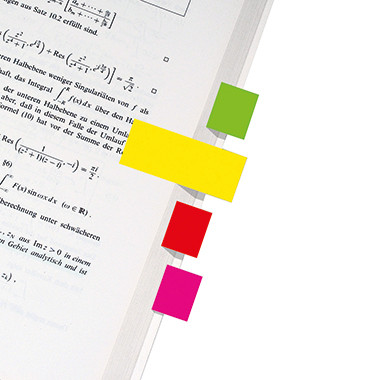 [ b_n + ··· + b_m ]
agen aus Satz 10.2 erfüllt sind.
( z² / z⁴+1 , e^{iπ/4} ) + Res ( z² / z⁴+1 , e^{i3π/4} ) ] = π / √2 .
Halbebene weniger Singularitäten von f als
haft, das Integral ∫_{-R}^{R} f(x)dx über den
der unteren Halbebene zu einem Umla
aber, daß in diesem Falle der Umlauf
ormel (10) hat vor der Summe der R
Res ( 1 / (z²+1)(z−i) , −i ) = πi / 2 .
§6)
∫_{-∞}^{∞} F(x) sin ωx dx (ω ∈ ℝ).
berechnung unter schwächeren
.., z_N aus Im z > 0 in einem
n Gebiet analytisch und ist
, z_k ) .